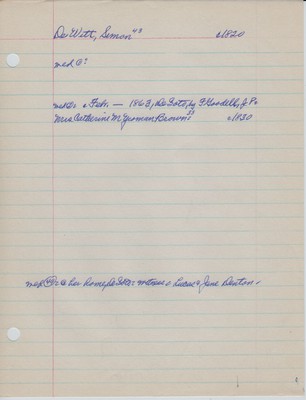 De Witt, Simon 43 c1820
md 1st
md 2: Feb. — 1863, De Soto, by F. Goodell, J.P.
Mrs Catherine M. Yeoman Brown 33 c1830
home, De Soto: witness Lucas & Jane Denton